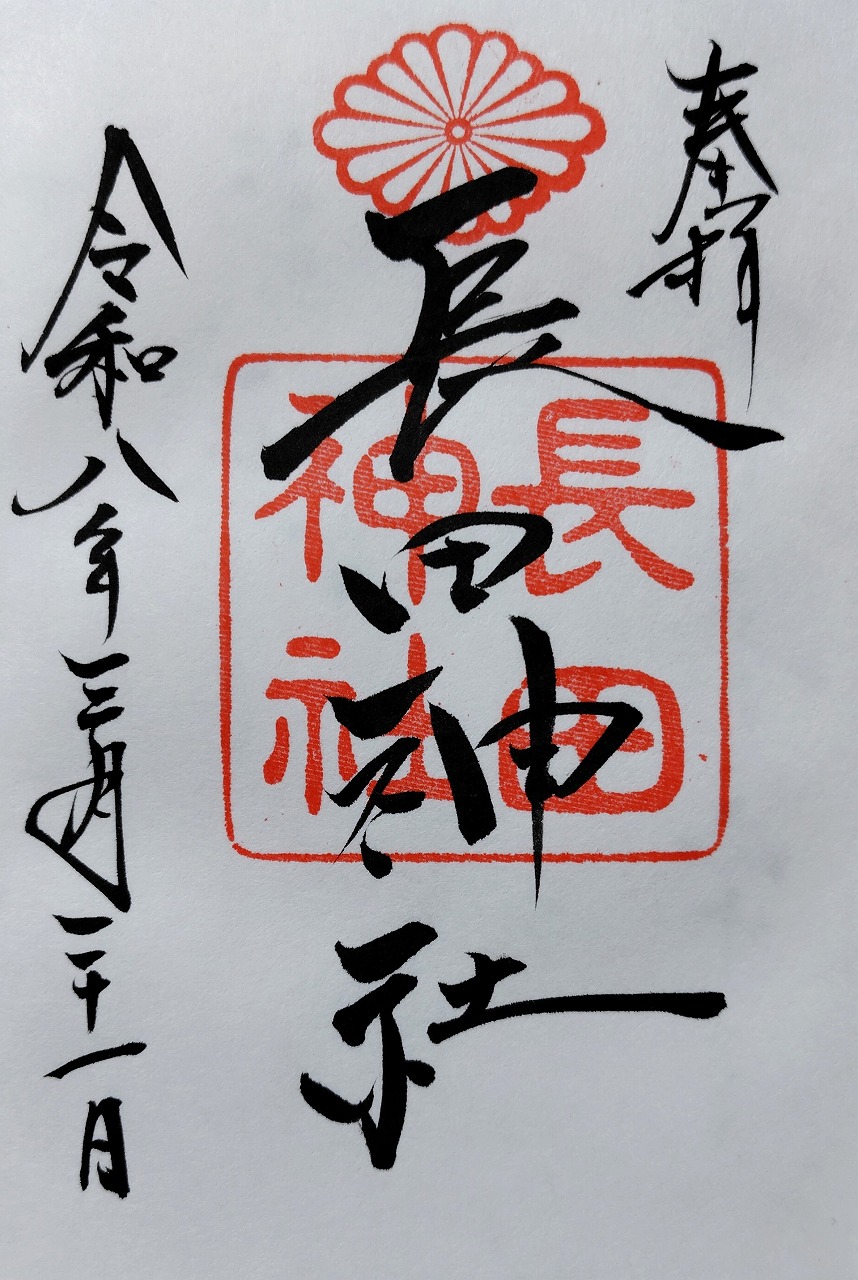 奉拝
長田神社
長田
神社
令和八年三月二十一日